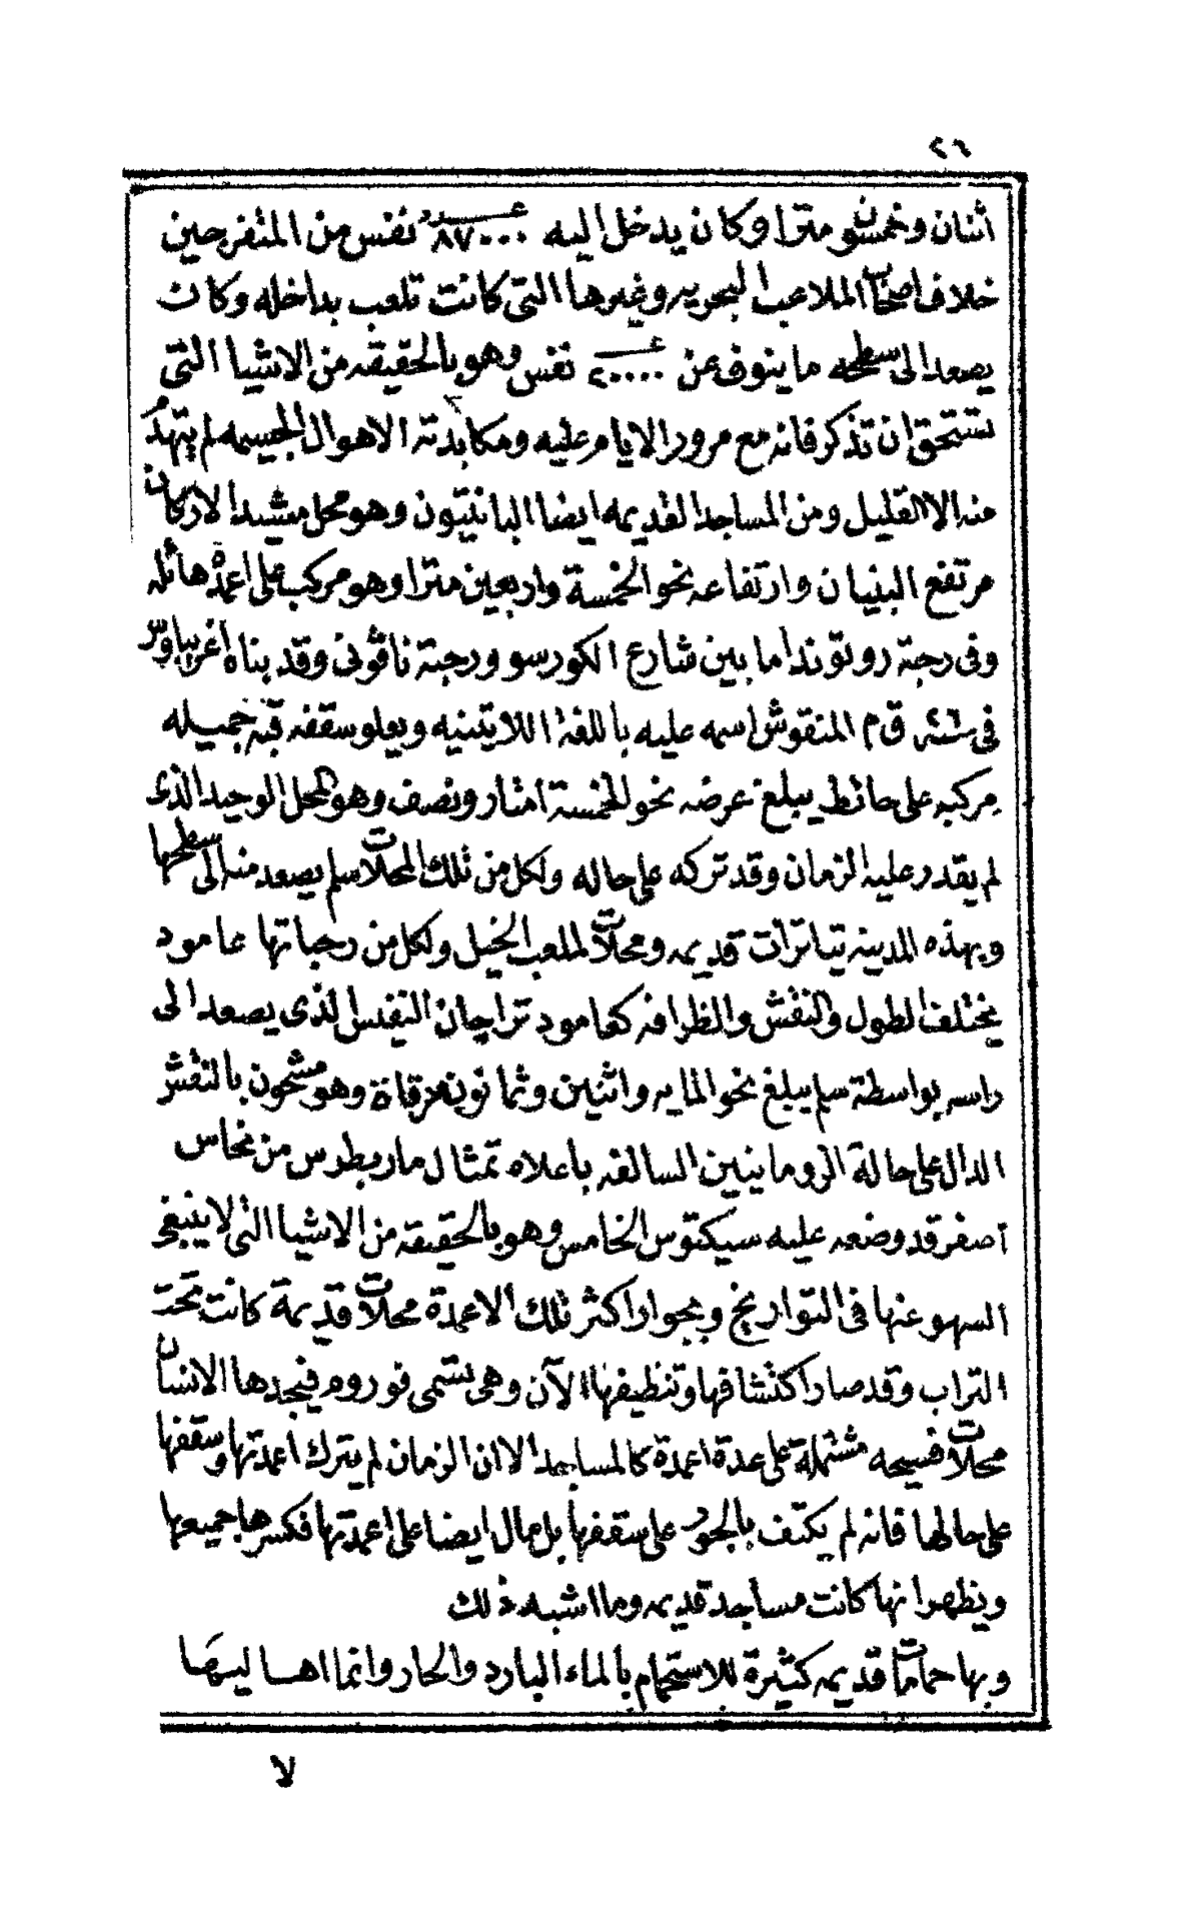 ٢٦
أثنان وخمسون مترا وكان يدخل اليه عدد ٨٧٠٠٠ نفس من المتفرجين
خلاف اصحاب الملاعب البحريه وغيرها التى كانت تلعب بداخله وكان
يصعد الى سطحه ما ينوف عن ٢٠٠٠٠ نفس وهو بالحقيقه من الاشيا التى
تستحق ان تذكر فانه مع مرور الايام عليه ومكابدته الاهوال الجسيمه لم يتهدم
منه الا القليل ومن المساجد القديمه ايضا البانتيون وهو محل مشيد الاركان
مرتفع البنيان وارتفاعه نحو الخمسة واربعين مترا وهو مركب على اعمدة هائله
وفى رحبة روتوندا ما بين شارع الكورسو ورحبة ناڤونى وقد بناه اغريباوس
فى سنة ٢٦ ق م المنقوش اسمه عليه باللغة اللاتينيه ويعلو سقفه قبة جميله
مركبه على حائط يبلغ عرضه نحو الخمسة امتار ونصف وهو المحل الوحيد الذى
لم يقدر عليه الزمان وقد تركه على حاله ولكل من تلك المحلات سلم يصعد منه الى سطحها
وبهذه المدينه تياترات قديمه ومحلات لملعب الخيل ولكل من رحباتها عامود
يختلف الطول والنقش والظرافه كعامود تراچان النفيس الذى يصعد الى
راسه بواسطة سلم يبلغ نحو المايه واثنين وثمانون مرقاة وهو مشحون بالنقش
الدال على حالة الرومانيين السالفه باعلاه تمثال ماربطرس من نحاس
اصفر قد وضعه عليه سيكتوس الخامس وهو بالحقيقه من الاشيا التى لا ينبغى
السهو عنها فى التواريخ وبجوار اكثر تلك الاعمدة محلات قديمة كانت تحت
التراب وقد صار اكتشافها وتنظيفها الآن وهى تسمى فوروم فيجدها الانسان
محلات فسيحه مشتملة على عدة اعمدة كالمساجد الا ان الزمان لم يترك اعمدتها وسقفها
على حالها فانه لم يكتف بالجور على سقفها بل مال ايضا على اعمدتها فكسرها جميعها
ويظهر انها كانت مساجد قديمه وما اشبه ذلك
وبها حمامات قديمه كثيرة للاستحمام بالماء البارد والحار وانما اهاليها
لا